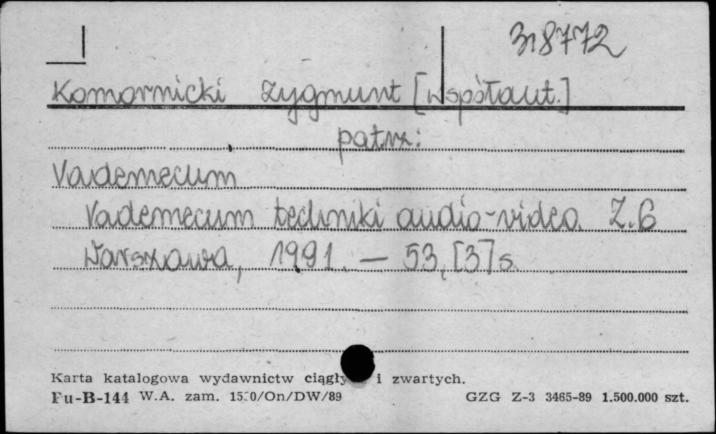 318772
Komornicki Zygmunt [współaut.]
patrz:
Vademecum
Vademecum techniki audio-video. Z. 6
Warszawa, 1991. — 53, [3] s.
Karta katalogowa wydawnictw ciągły i zwartych.
Fu-B-144 W.A. zam. 1520/On/DW/89 GZG Z-3 3465-89 1.500.000 szt.